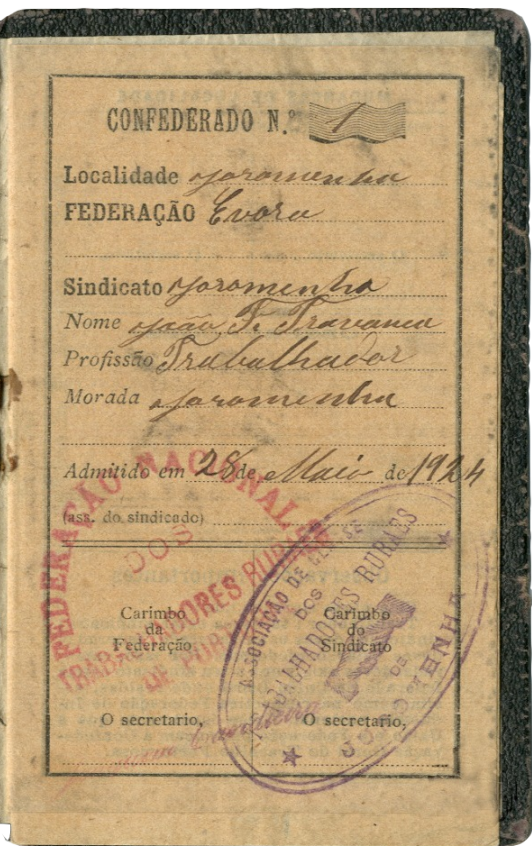 CONFEDERADO N.º 1
Localidade Joromenha
FEDERAÇÃO Evora
Sindicato Joromenha
Nome João F. Travanca
Profissão Trabalhador
Morada Joromenha
Admitido em 28 de Maio de 1924
(ass. do sindicado)
FEDERAÇÃO NACIONAL
DOS
TRABALHADORES RURAES
DE PORTUGAL
ASSOCIAÇÃO DE CLASSE
DOS
TRABALHADORES RURAES
DE
JOROMENHA
Carimbo
da
Federação
Carimbo
do
Sindicato
O secretario,
O secretario,